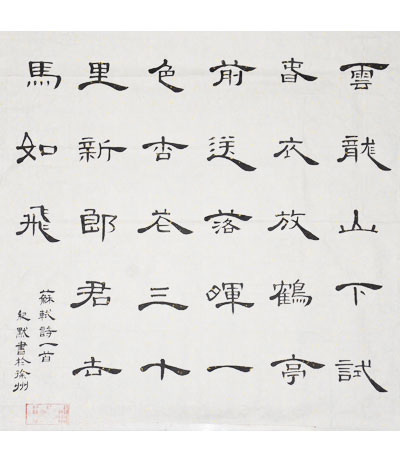 雲龍山下試
春衣放鶴亭
前送落暉一
色杏花三十
里新郎君去
馬如飛
蘇軾詩一首
默書於徐州